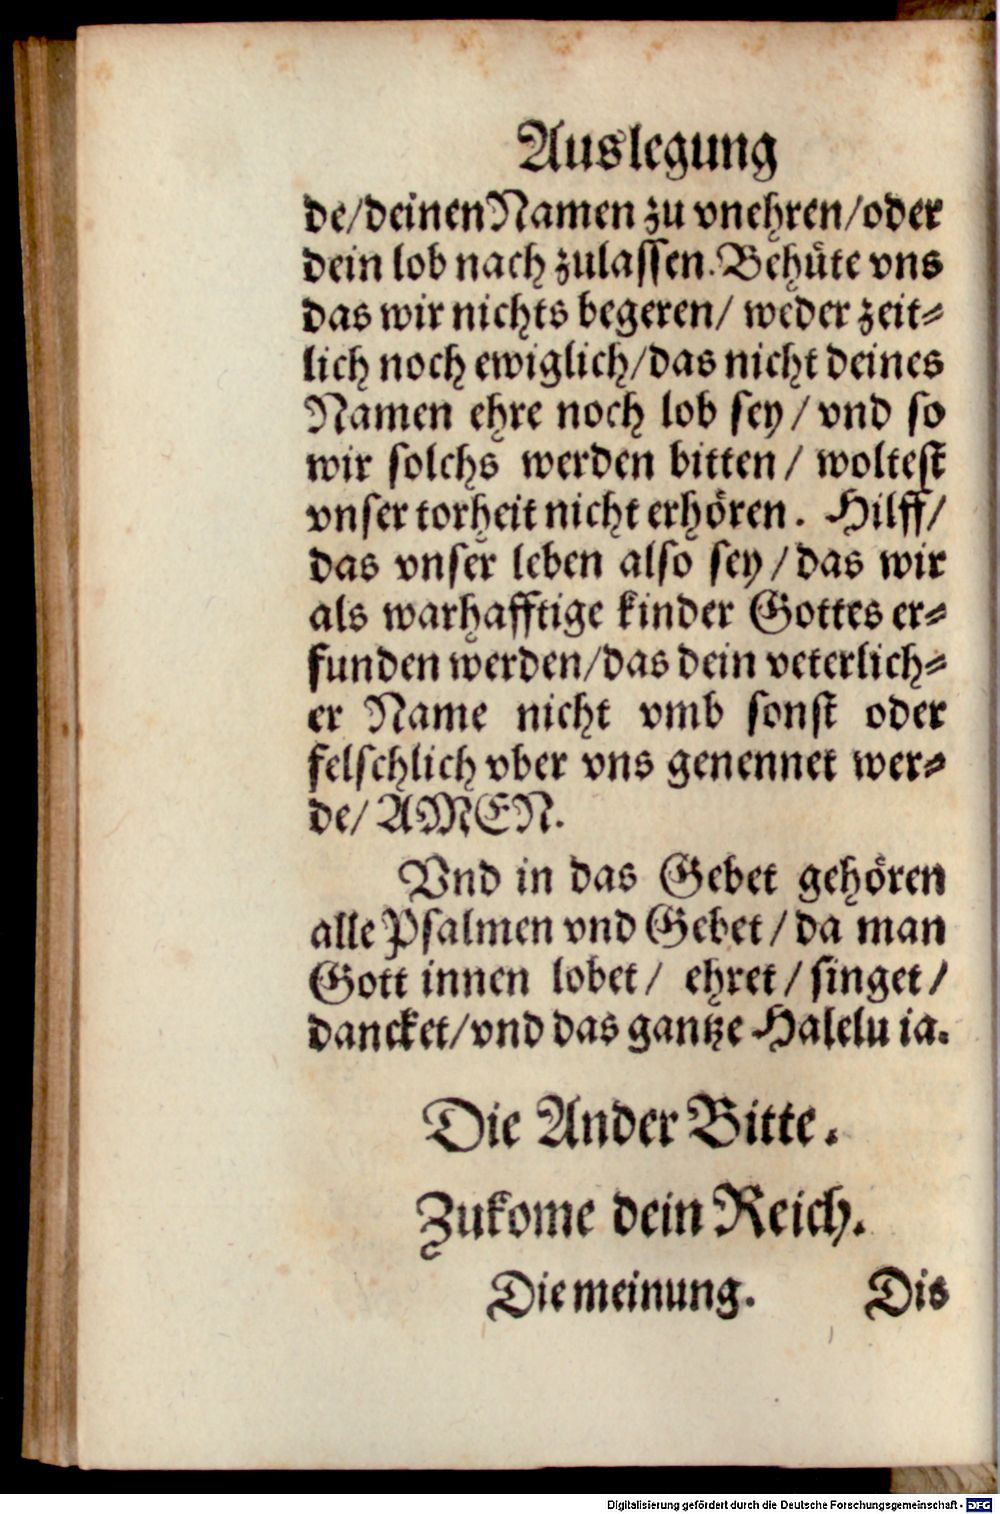 Auslegung
de/deinen Namen zu vnehren/oder
dein lob nach zulassen. Behüte vns
das wir nichts begeren/ weder zeit⸗
lich noch ewiglich/das nicht deines
Namen ehre noch lob sey/ vnd so
wir solchs werden bitten/ woltest
vnser torheit nicht erhören. Hilff/
das vnser leben also sey/das wir
als warhafftige kinder Gottes er⸗
funden werden/das dein veterlich⸗
er Name nicht vmb sonst oder
felschlich vber vns genennet wer⸗
de/ AMEN.
Vnd in das Gebet gehören
alle Psalmen vnd Gebet/ da man
Gott innen lobet/ ehret/ singet/
dancket/vnd das gantze Halelu ia.
Die Ander Bitte.
Zukome dein Reich.
Die meinung. Dis
Digitalisierung gefördert durch die Deutsche Forschungsgemeinschaft - DFG